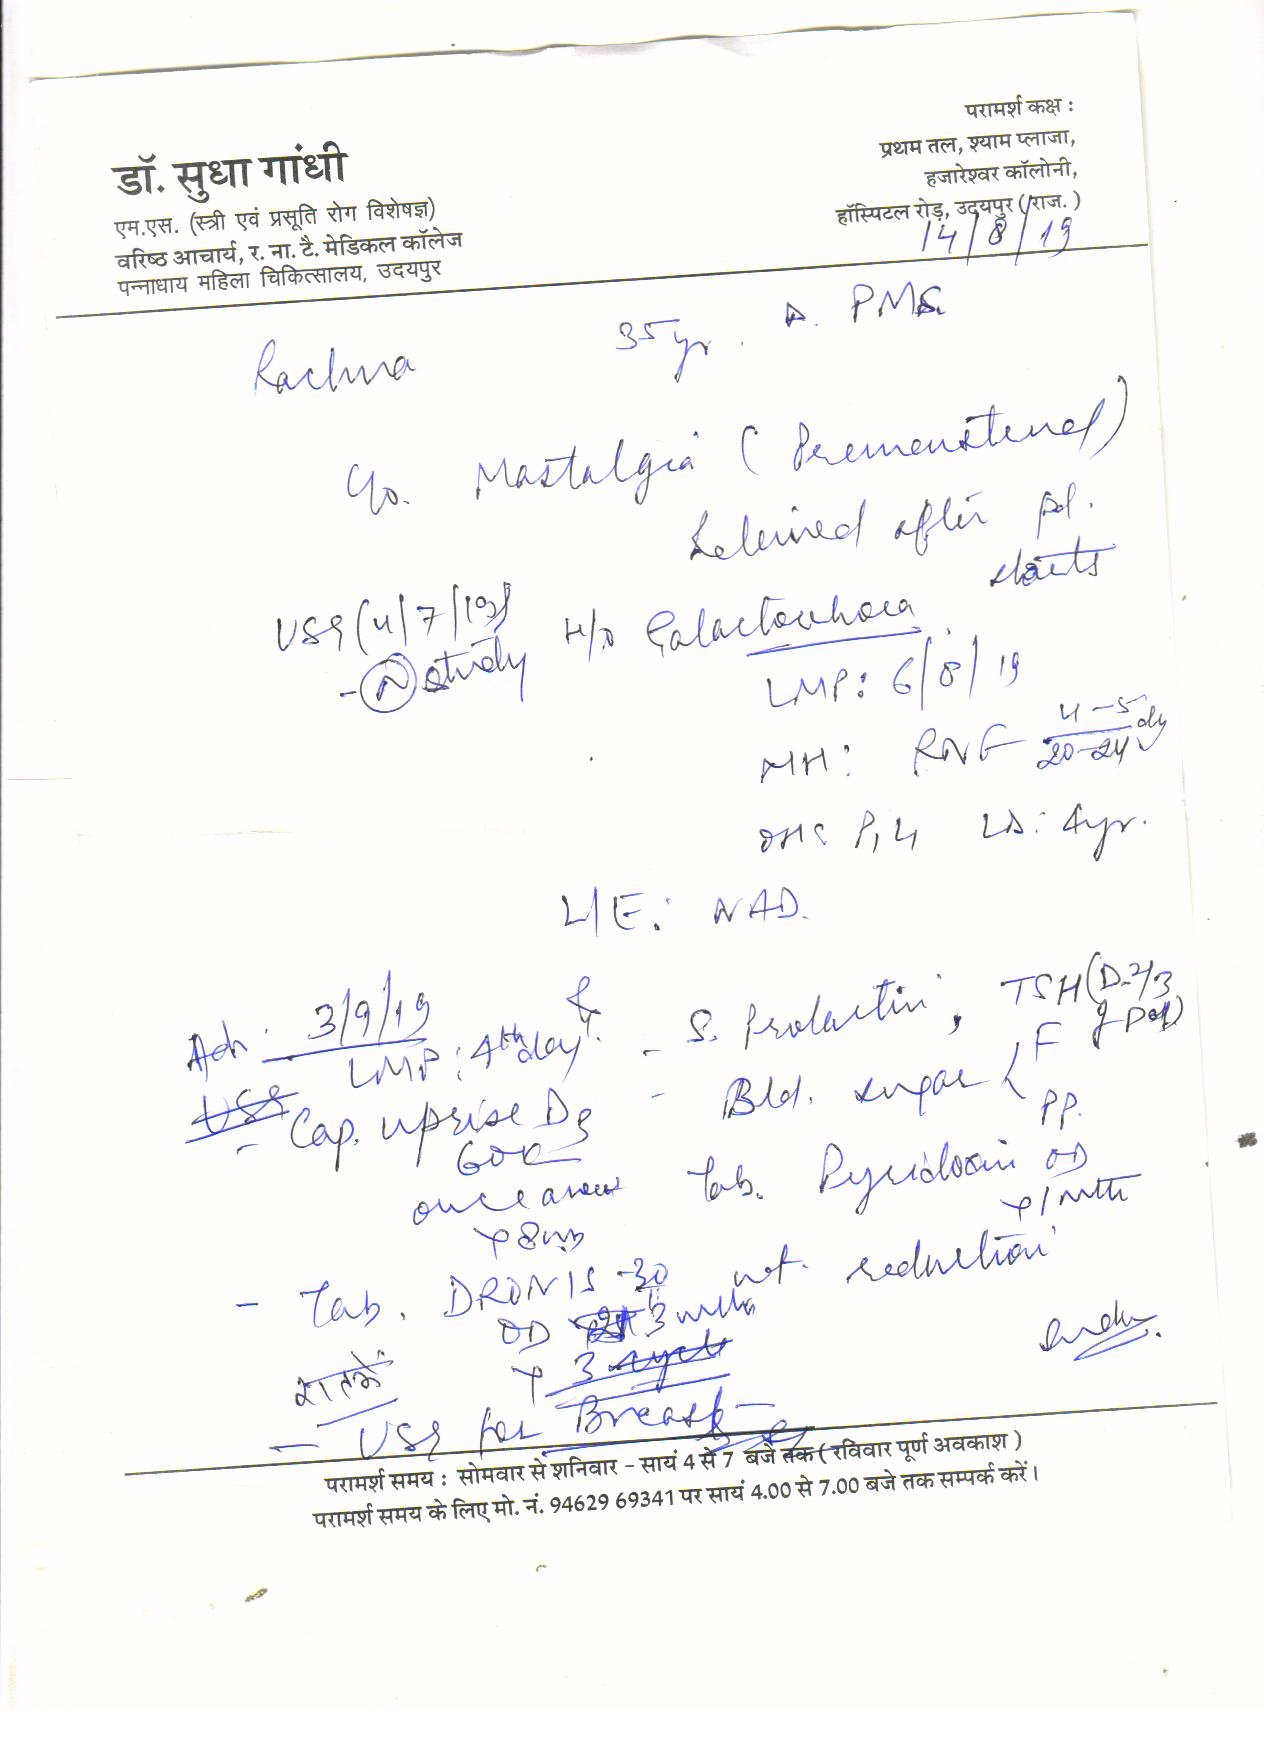 डॉ. सुधा गांधी
एम.एस. (स्त्री एवं प्रसूति रोग विशेषज्ञ)
वरिष्ठ आचार्य, र. ना. टै. मेडिकल कॉलेज
पन्नाधाय महिला चिकित्सालय, उदयपुर
परामर्श कक्ष :
प्रथम तल, श्याम प्लाजा,
हजारेश्वर कॉलोनी,
हॉस्पिटल रोड़, उदयपुर (राज. )
14/8/19
Rachna 35 yr. PMS.
C/o. Mastalgia (Premenstrual)
Relieved after pd.
starts
USG (4/7/19) H/o Galactorrhoea
- N study
LMP: 6/8/19
MH: 4-5 dy
20-24
P1L1 LD: 4yr.
L/E: NAD.
Adv. 3/9/19
LMP: 4th day
- S. Prolactin, TSH (D-2/3
of Pd)
- Bld. sugar < F
PP.
- Cap. uprise D3
60K
once a week
x 8 wk
Tab. Pyridoxin OD
x 1 mth
- Tab. DRONIS-30
OD x 3 mth
wt. reduction
x 3 cycle
रात को
- USG for Breast
परामर्श समय : सोमवार से शनिवार - सायं 4 से 7 बजे तक ( रविवार पूर्ण अवकाश )
परामर्श समय के लिए मो. नं. 94629 69341 पर सायं 4.00 से 7.00 बजे तक सम्पर्क करें।